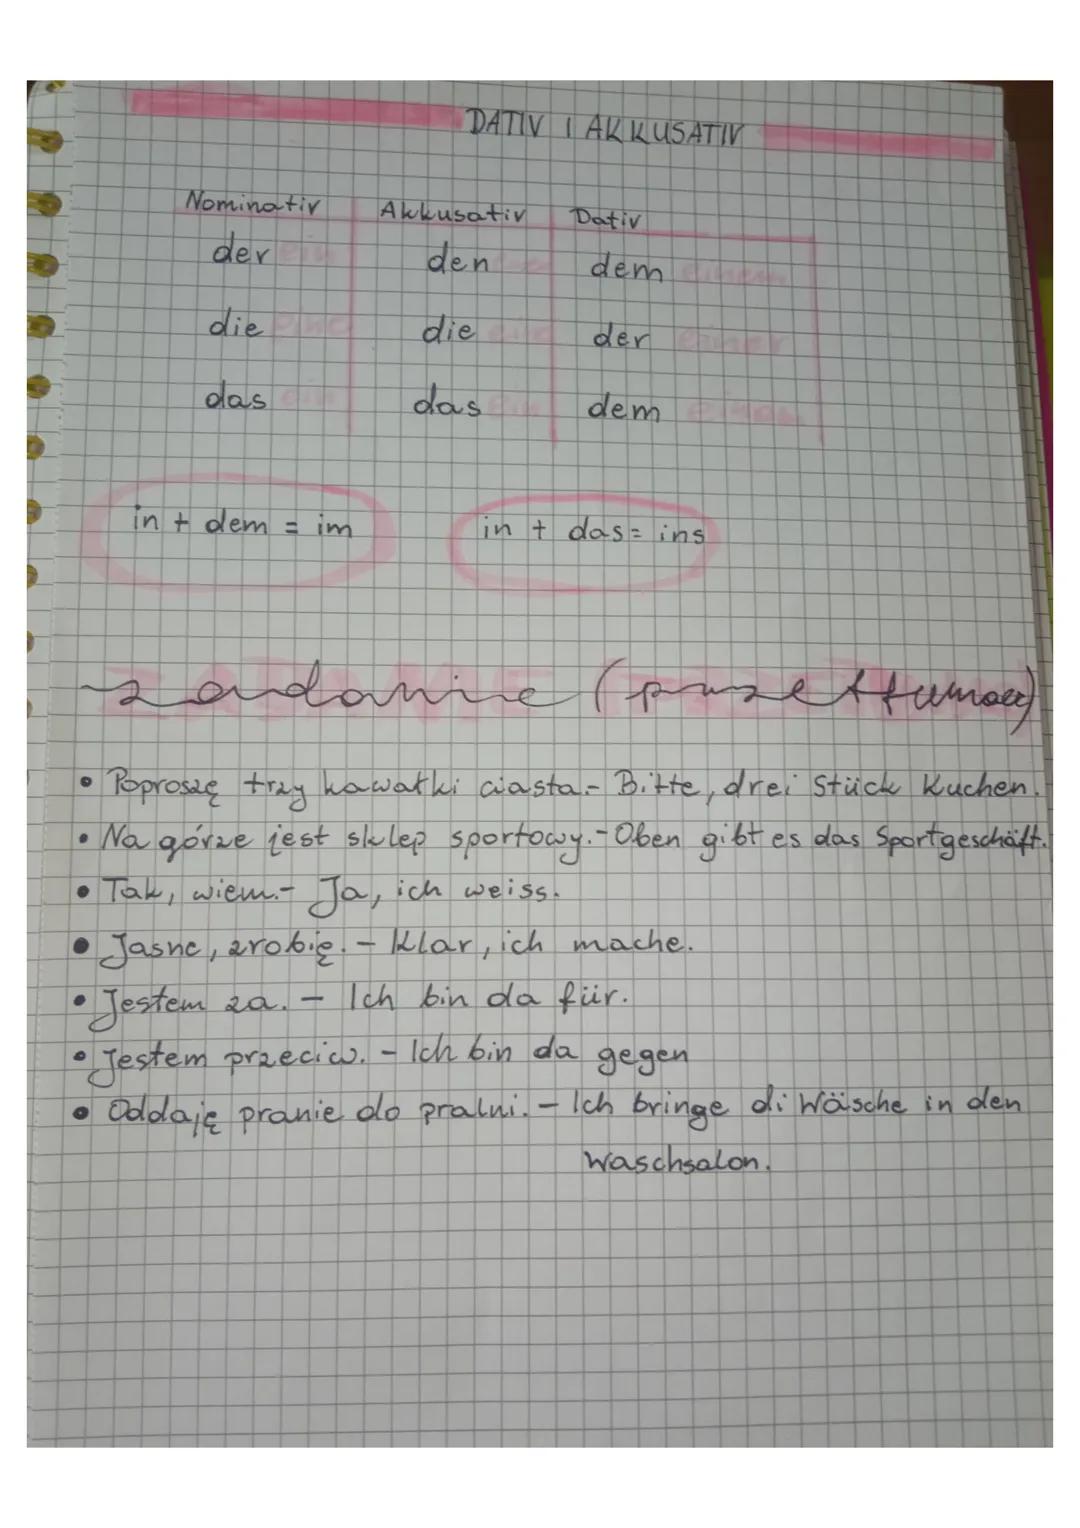 DATIV I AKKUSATIV
Nominativ Akkusativ Dativ
der ein den dem einem
die eine die eine der einer
das ein das ein dem einem
in + dem = im in + das = ins
zadanie (przetłumacz)
• Poproszę trzy kawałki ciasta.- Bitte, drei Stück Kuchen.
• Na górze jest sklep sportowy.- Oben gibt es das Sportgeschäft.
• Tak, wiem.- Ja, ich weiss.
• Jasne, zrobię. - Klar, ich mache.
• Jestem za. - Ich bin da für.
• Jestem przeciw. - Ich bin da gegen
• Oddaję pranie do pralni. - Ich bringe di Wäsche in den
Waschsalon.